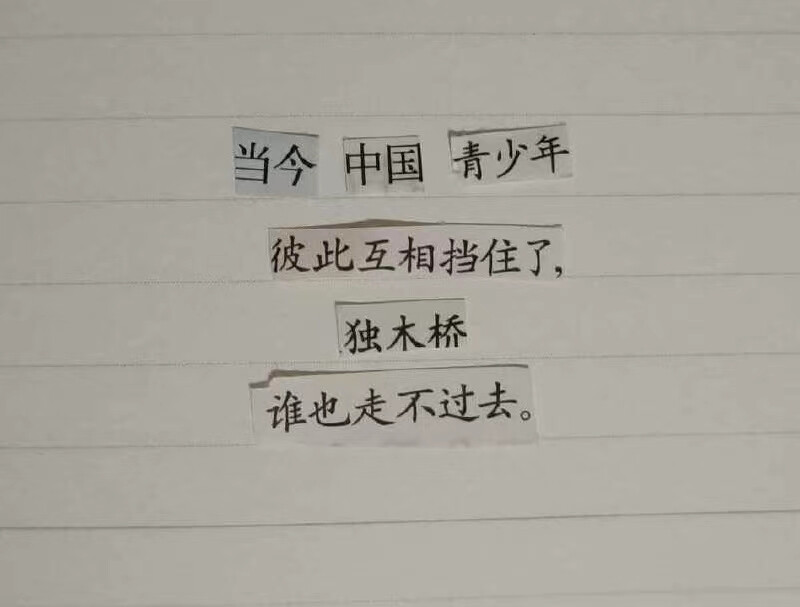 当今 中国 青少年
彼此互相挡住了,
独木桥
谁也走不过去。